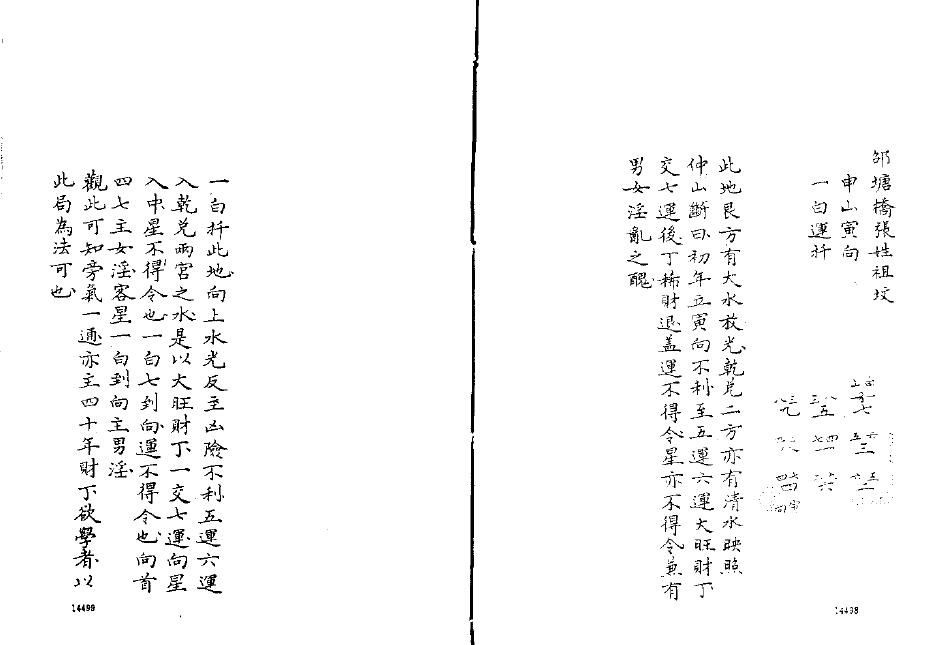 邹塘橋張姓祖坟
申山寅向
一白運扦
此地艮方有大水放光乾兑二方亦有清水映照
仲山斷曰初年立寅向不利至五運六運大旺財丁
交七運後丁稀財退盖運不得令星亦不得令兼有
男女淫亂之醜
14498
一白扦此地向上水光反主凶險不利五運六運
入乾兑兩宮之水是以大旺財丁一交七運向星
入中星不得令也一白七到向運不得令也向首
四七主女淫客星一白到向主男淫
觀此可知旁氣一通亦主四十年財丁欲學者以
此局為法可也
14499